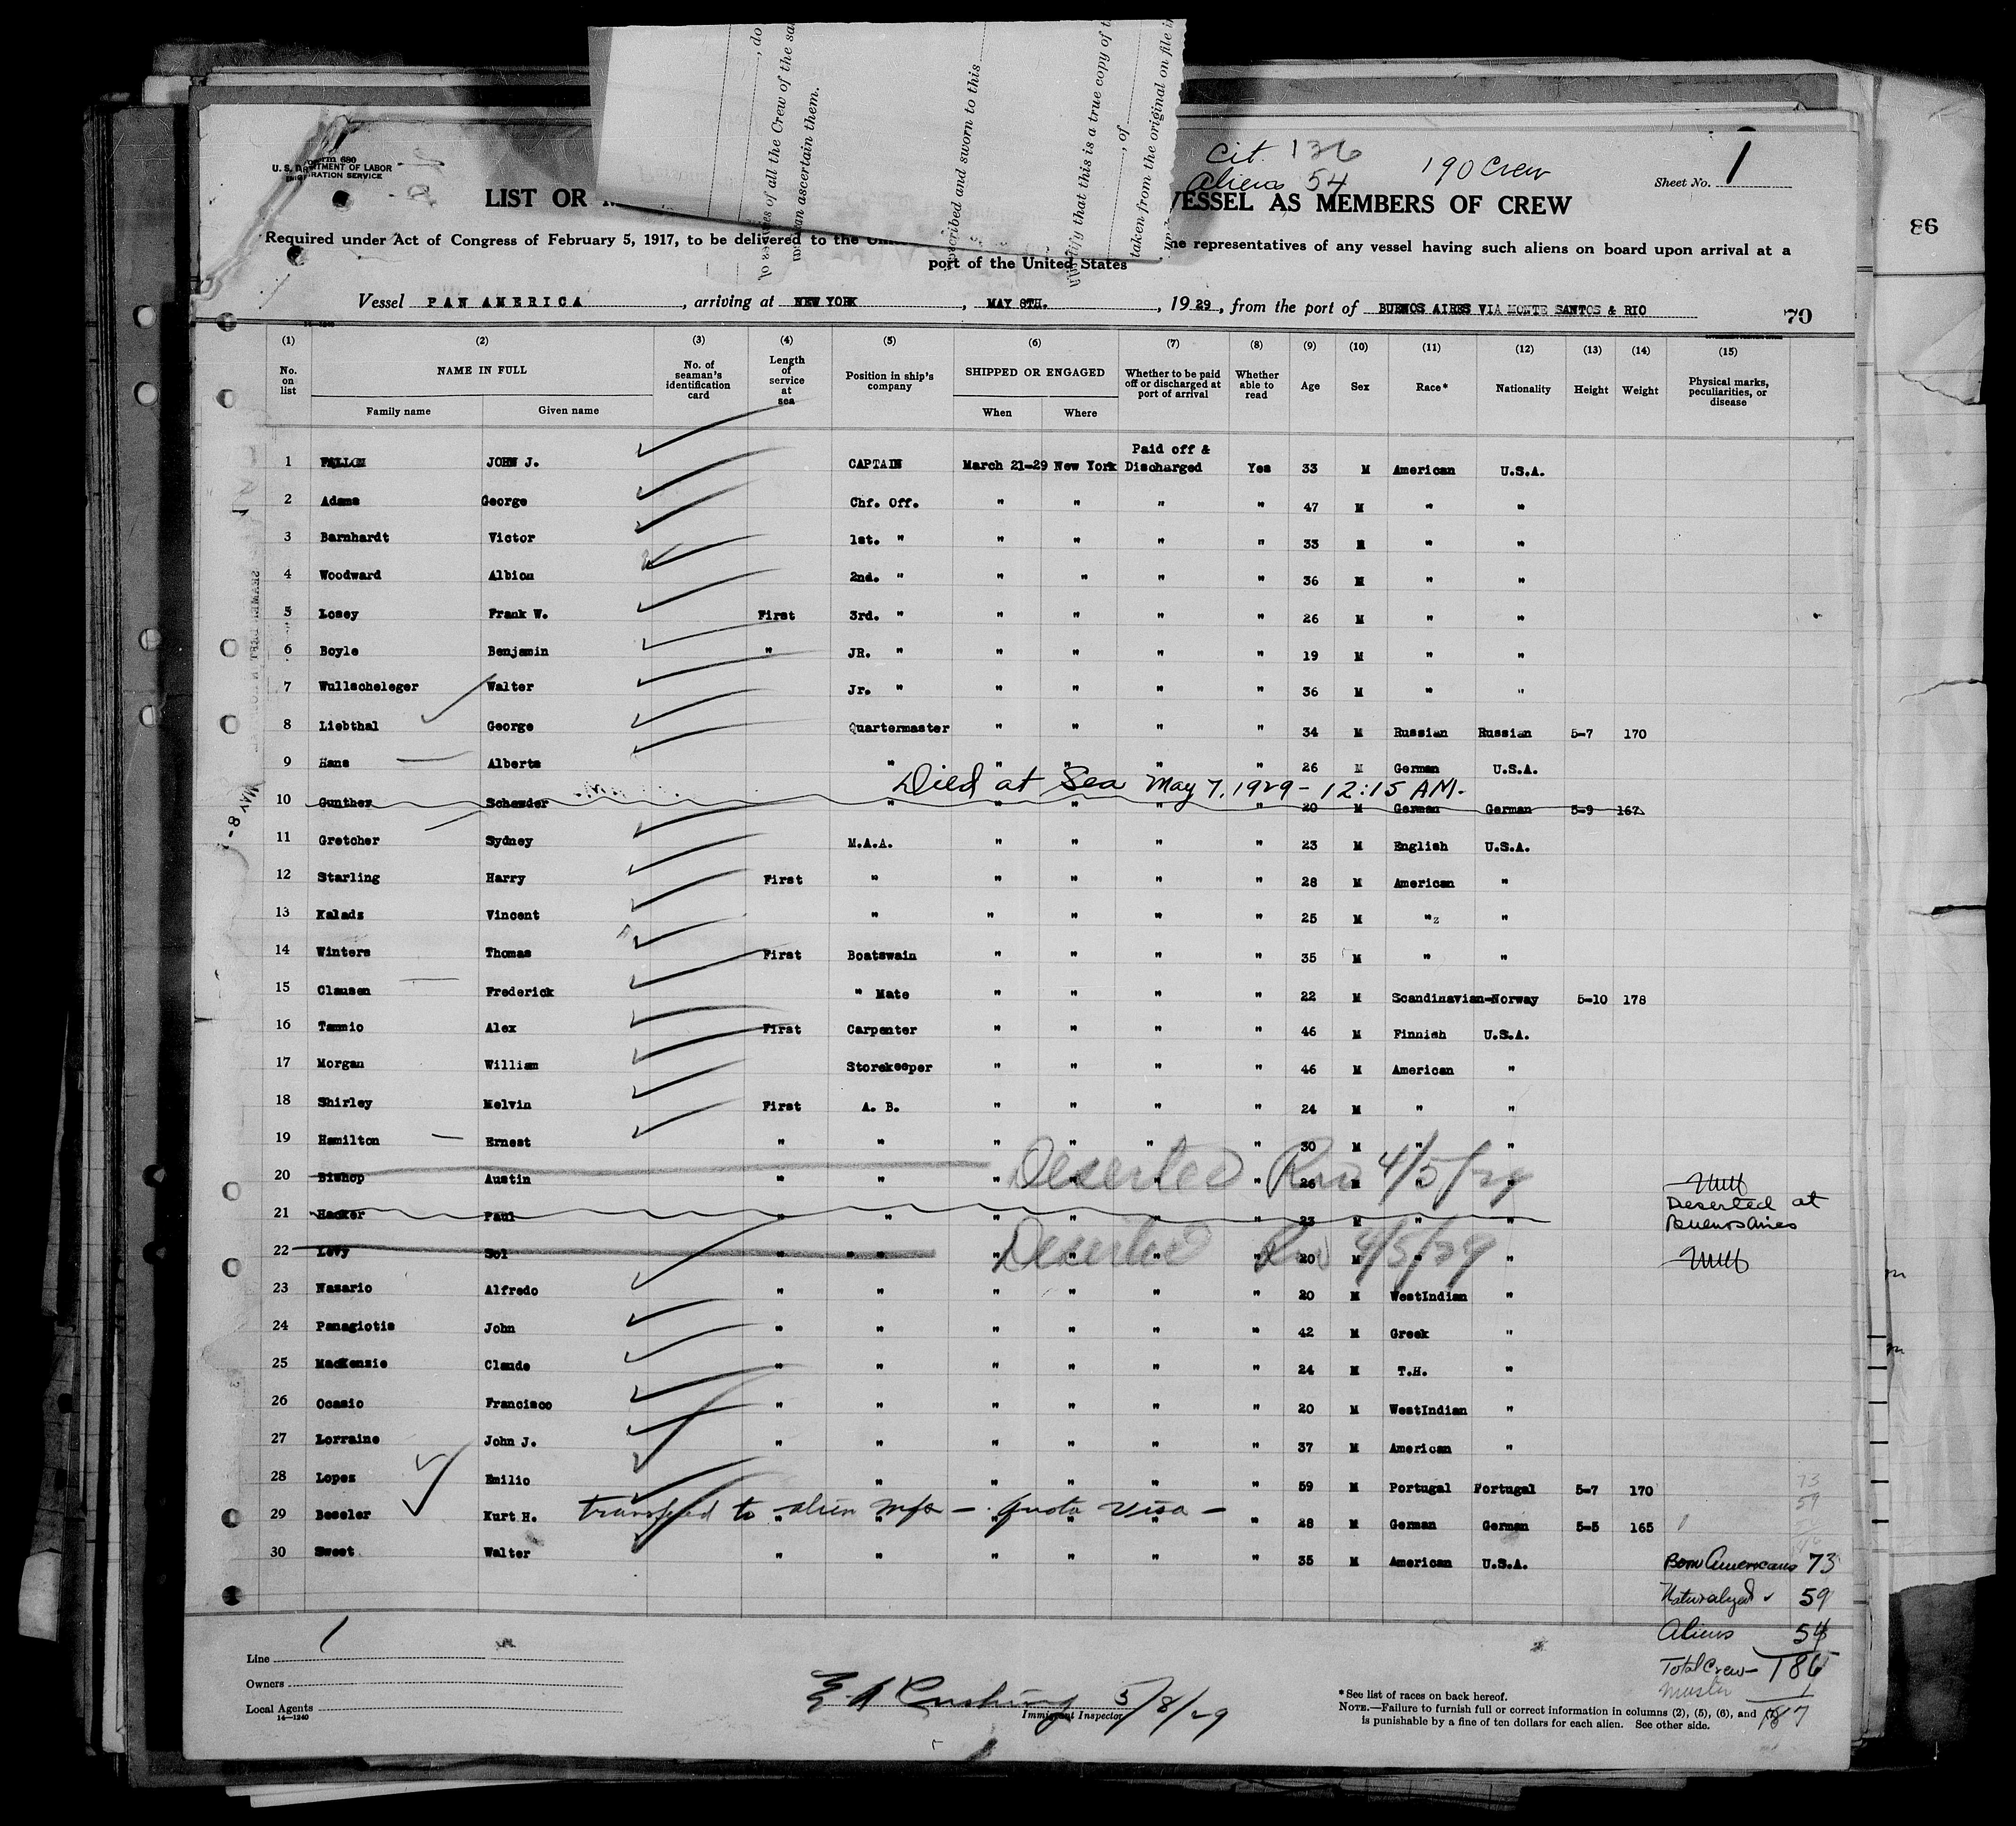 , do
To
names of all the Crew of the sa
can ascertain them.
scribed and sworn to this
tify that this is a true copy of t
, of
taken from the original on file in
Cit. 136
Aliens 54
190 Crew
Form 680
U. S. DEPARTMENT OF LABOR
IMMIGRATION SERVICE
Sheet No. 1
LIST OR
VESSEL AS MEMBERS OF CREW
86
Required under Act of Congress of February 5, 1917, to be delivered to the
representatives of any vessel having such aliens on board upon arrival at a
port of the United States
Vessel PAN AMERICA, arriving at NEW YORK, MAY 8TH., 1929, from the port of BUENOS AIRES VIA MONTE SANTOS & RIO
70
(1) (2) (3) (4) (5) (6) (7) (8) (9) (10) (11) (12) (13) (14) (15)
No. on list NAME IN FULL No. of seaman's identification card Length of service at sea Position in ship's company SHIPPED OR ENGAGED Whether to be paid off or discharged at port of arrival Whether able to read Age Sex Race* Nationality Height Weight Physical marks, peculiarities, or disease
Family name Given name When Where
1 FALLON JOHN J. CAPTAIN March 21-29 New York Paid off & Discharged Yes 33 M American U.S.A.
2 Adams George Chf. Off. " " " " 47 M " "
3 Barnhardt Victor 1st. " " " " " 33 M " "
4 Woodward Albion 2nd. " " " " " 36 M " "
5 Losey Frank W. First 3rd. " " " " " 26 M " "
6 Boyle Benjamin " JR. " " " " " 19 M " "
7 Wullscheleger Walter Jr. " " " " " 36 M " "
8 Liebthal George Quartermaster " " " " 34 M Russian Russian 5-7 170
9 Hans Alberts " " " " " 26 M German U.S.A.
Died at Sea May 7, 1929 - 12:15 AM.
10 Gunther Schewder " " " " " 20 M German German 5-9 167
11 Gretcher Sydney M.A.A. " " " " 23 M English U.S.A.
12 Starling Harry First " " " " " 28 M American "
13 Kalads Vincent " " " " " 25 M "z "
14 Winters Thomas First Boatswain " " " " 35 M " "
15 Clausen Frederick " Mate " " " " 22 M Scandinavian-Norway 5-10 178
16 Tammio Alex First Carpenter " " " " 46 M Finnish U.S.A.
17 Morgan William Storekeeper " " " " 46 M American "
18 Shirley Melvin First A. B. " " " " 24 M " "
19 Hamilton Ernest " " " " " " 30 M " "
20 Bishop Austin " " " " " " 26 M " "
Deserted Rio 4/5/29
21 Hacker Paul " " " " " " 23 M " " Deserted at Buenos Aires
22 Levy Sol " " " " " " " 20 M " "
Deserted Rio 4/5/29
23 Nasario Alfredo " " " " " " 20 M WestIndian "
24 Panagiotis John " " " " " " 42 M Greek "
25 MacKenzie Claude " " " " " " 24 M T.H. "
26 Ocasio Francisco " " " " " " 20 M WestIndian "
27 Lorraine John J. " " " " " " 37 M American "
28 Lopes Emilio " " " " " 59 M Portugal Portugal 5-7 170
29 Beseler Kurt H. " " " " " " 28 M German German 5-5 165
transfered to alien mfs - quota visa -
30 Sweet Walter " " " " " " 35 M American U.S.A.
MAY 8 -
Born Americans 73
Naturalized 59
Aliens 54
Total Crew - 186
Master 1
187
Line
Owners
Local Agents
14-1240
E A Cushing 5/8/29
Immigrant Inspector
* See list of races on back hereof.
NOTE.—Failure to furnish full or correct information in columns (2), (5), (6), and
is punishable by a fine of ten dollars for each alien. See other side.